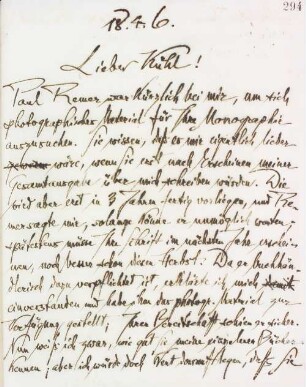 294
18.4.6.
Lieber Kühl!
Paul Remer war kürzlich bei mir, um sich
photographisches Material für Ihre Monographie
auszusuchen. Sie wissen, daß es mir eigentlich lieber
wäre, wenn Sie erst nach Erscheinen meiner
Gesamtausgabe über mich schreiben würden. Die
wird aber erst in 3 Jahren fertig vorliegen, und Re-
mer sagte mir, solange könne er unmöglich warten –
spätestens müsse Ihre Schrift im nächsten Jahr erschei-
nen, noch besser schon diesen Herbst. Da er buchhänd-
lerisch dazu verpflichtet ist, erklärte ich mich
einverstanden und habe ihm das photogr. Material zur
Verfügung gestellt; Ihrer Bereitschaft schien er sicher.
Nun weiß ich zwar, wie gut Sie meine einzelnen Bücher
kennen; aber ich würde doch Wert darauf legen, daß Sie